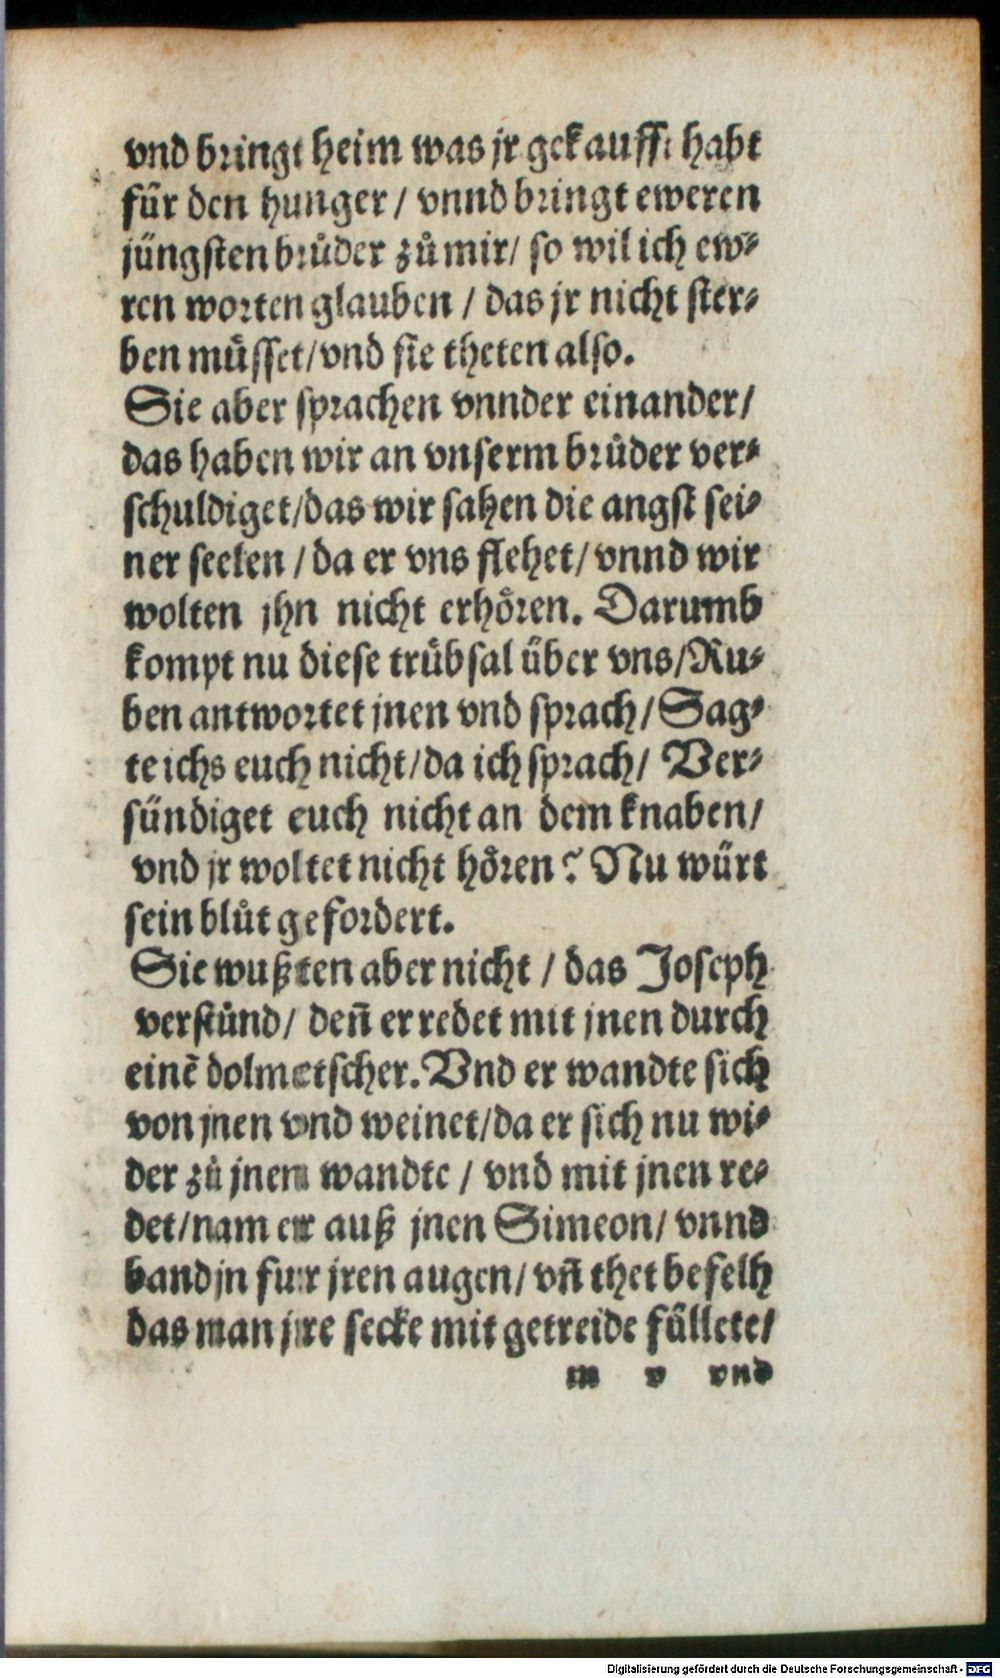 vnd bringt heim was jr gekaufft habt
für den hunger / vnnd bringt eweren
jüngsten brůder zů mir/ so wil ich ew⸗
ren worten glauben / das jr nicht ster⸗
ben müsset/vnd sie theten also.
Sie aber sprachen vnnder einander/
das haben wir an vnserm brůder ver⸗
schuldiget/das wir sahen die angst sei⸗
ner seelen / da er vns flehet/ vnnd wir
wolten jhn nicht erhören. Darumb
kompt nu diese trübsal über vns/Ru⸗
ben antwortet jnen vnd sprach/ Sag⸗
te ichs euch nicht/da ich sprach/ Ver⸗
sündiget euch nicht an dem knaben/
vnd jr woltet nicht hören? Nu würt
sein blůt gefordert.
Sie wußten aber nicht / das Joseph
verstünd/ deñ er redet mit jnen durch
einē dolmetscher. Vnd er wandte sich
von jnen vnd weinet/da er sich nu wi⸗
der zů jnem wandte / vnd mit jnen re⸗
det/nam er auß jnen Simeon/ vnnd
band jn fur jren augen/ vñ thet befelh
das man jre secke mit getreide füllete/
m v vnd
Digitalisierung gefördert durch die Deutsche Forschungsgemeinschaft - DFG